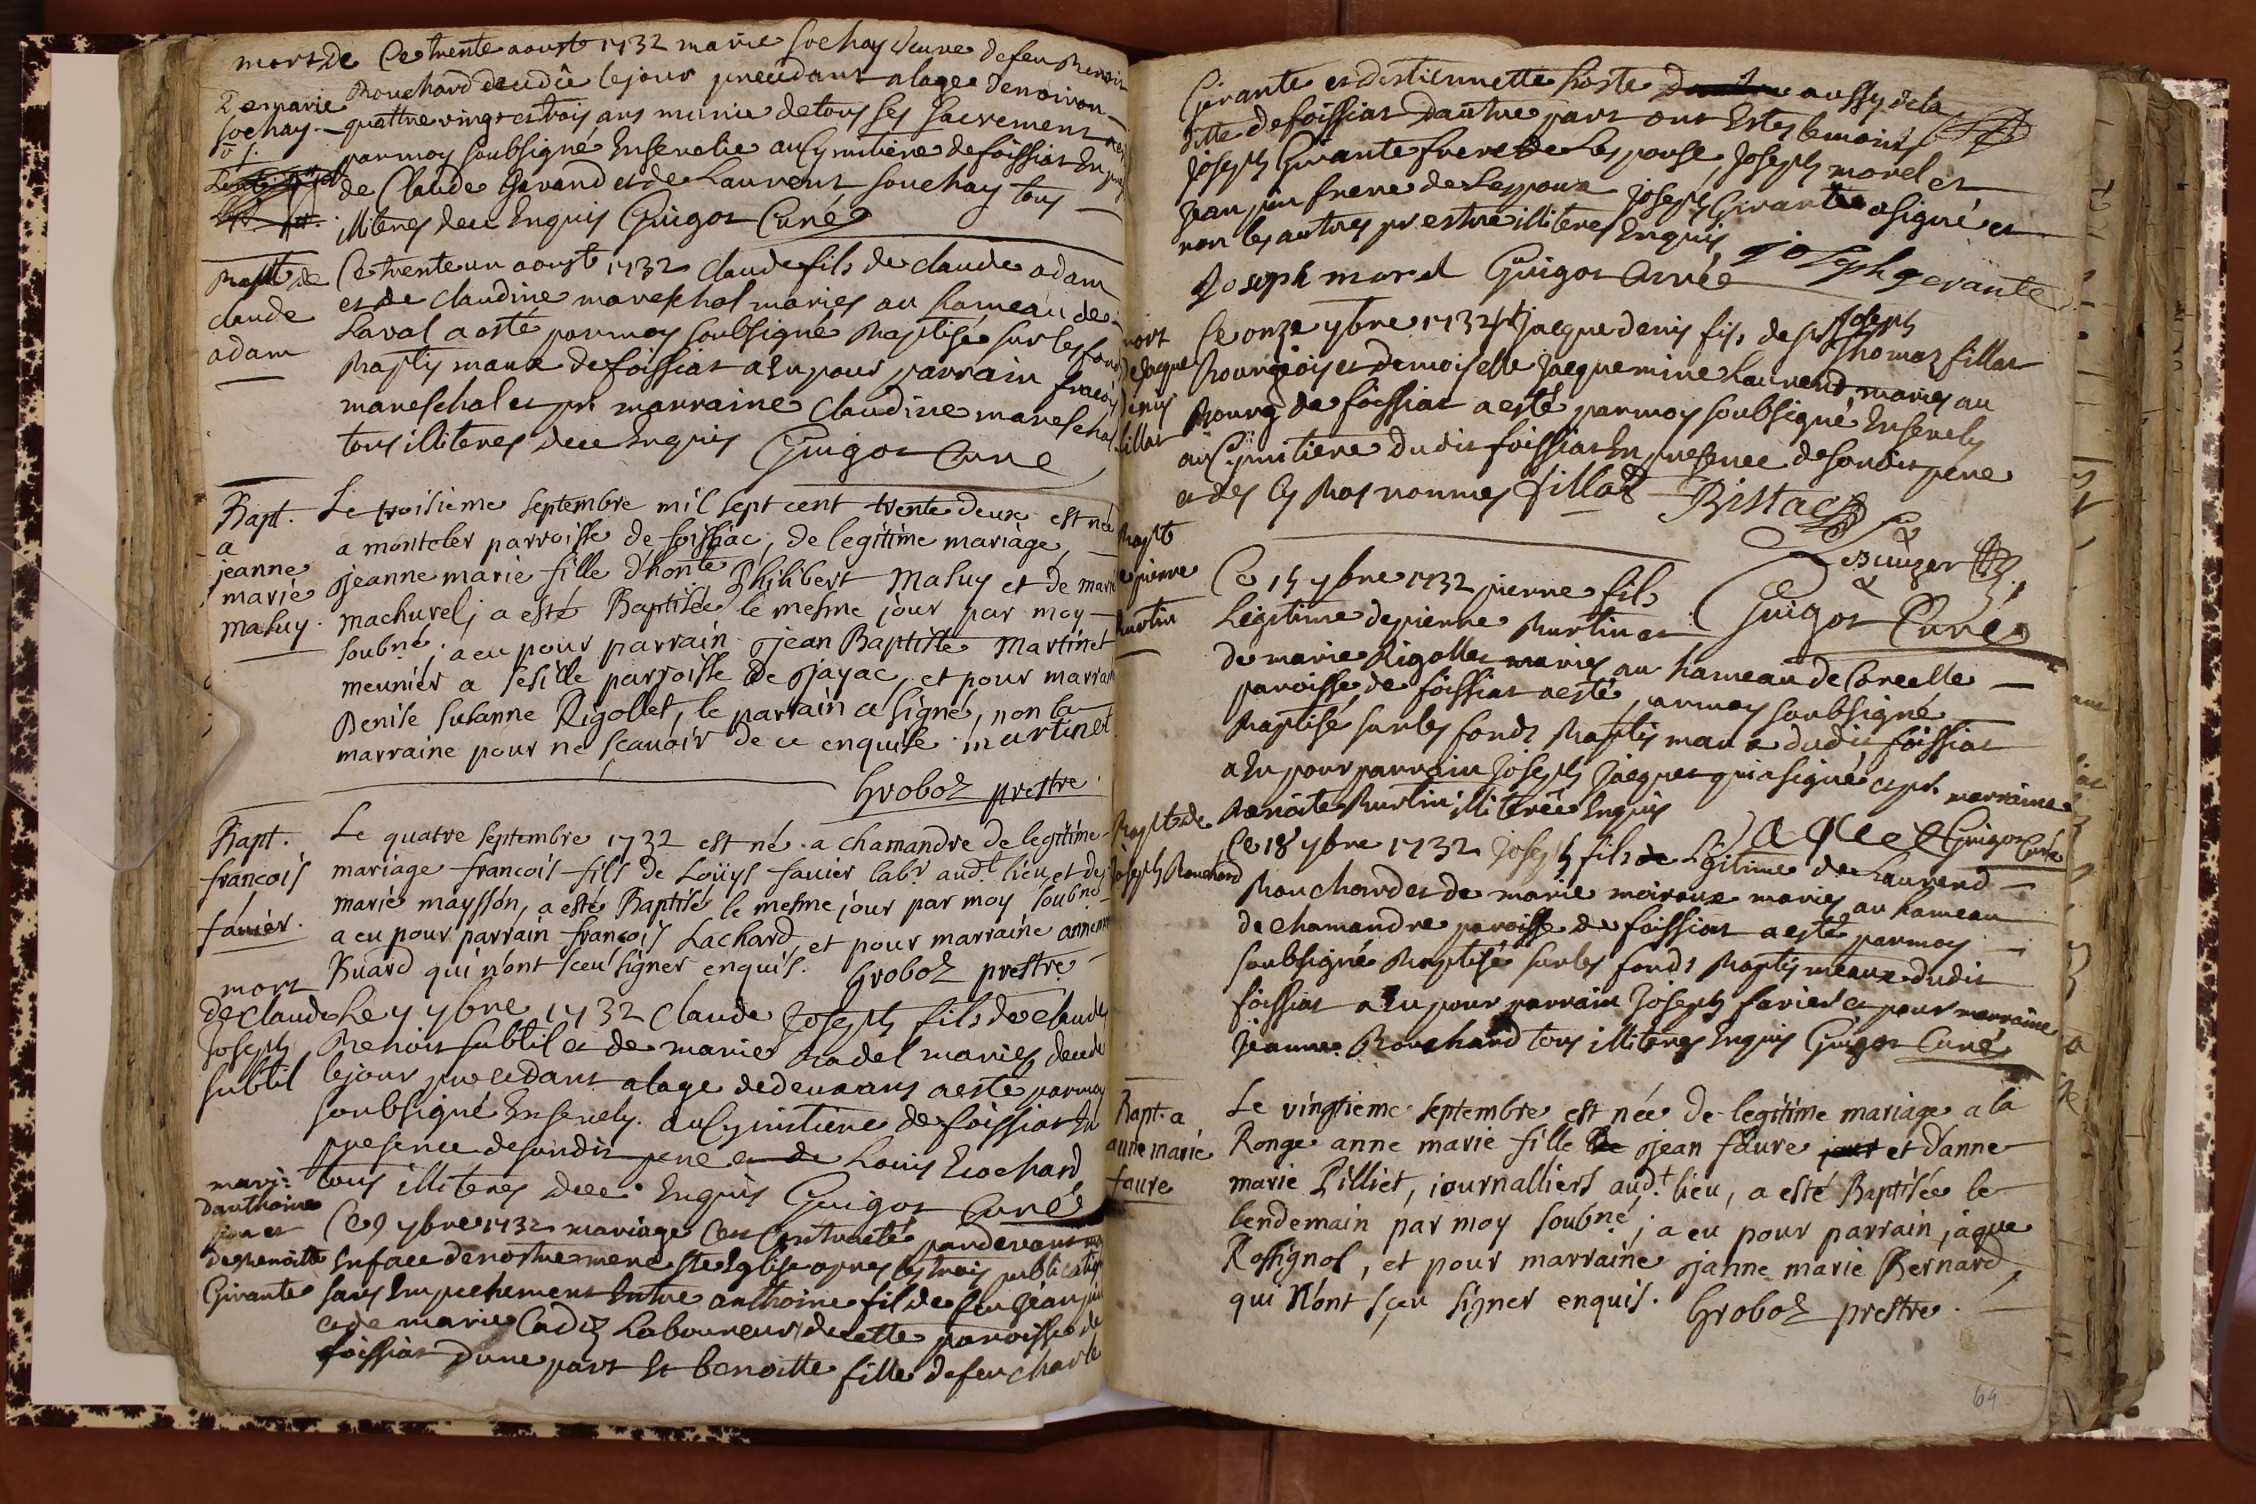 mort de
marie
sochay
Ce trente aoust 1732 marie sochay veuve de feu Benoit
Bouchard decedée le jour precedant alage denviron
quattre vingt et trois ans munie de tous ses sacrements a esté
par moy soubsigné Enseuelie au Cymitiere de foissiat En
de Claude Gavand et de Laurent souchay tous
illiteres dece Enquis Guigot Curé
Bapt de
claude
adam
Ce trente un aoust 1732 claude fils de claude adam
et de claudine mareschal mariés au hameau de
Laval a esté par moy soubsigné Baptisé sur les fonds
Baptismaux de foissiat a Eu pour parrain
mareschal et pr marraine Claudine mareschal
tous illiteres dece Enquis Guigot Curé
Bapt.
a
jeanne
marie
Mahuy.
Le troisieme septembre mil sept cent trente deux est née
a monteler parroisse de foissiac, de legitime mariage,
jeanne marie fille d'honte Philibert Mahuy et de marie
machurel; a esté Baptisée le mesme jour par moy
soubné; a eu pour parrain jean Baptiste Martinet
meunier a sesille parroisse de jayac, et pour marraine
Denise susanne Rigollet, le parrain a signé, non la
marraine pour ne scauoir de ce enquise. martinet
Groboz prestre.
Bapt.
francois
fauier.
Le quatre septembre 1732 est né a chamandre de legitime
mariage francois fils de Loüys fauier labr. audt. lieu et de
marie mayssón, a esté Baptisé le mesme jour par moy soubné
a eu pour parrain françois Lachard, et pour marraine
Buard qui n'ont sceu signer enquis. Groboz prestre
mort
de claude
Joseph
subtil
Le 7 7bre 1732 Claude Joseph fils de claude
Benoit subtil et de marie Badel mariés decedé
le jour precedant alage de deux ans a esté par moy
soubsigné Enseuely au Cymitiere de foissiat En
presence desondit pere et de Louis Ecochard
tous illiteres dece Enquis Guigot Curé
mari:
danthoine
pin et
de benoitte
Girante
Ce 9 7bre 1732 mariage cest Contracté pardevant moy
En face de nostre mere ste Eglise apres les trois publications
sans Empechement Entre anthoine fils de feu Jean pin
et de marie Cadiz Laboureur de cette paroisse de
foissiat dune part Et benoitte fille de feu charle
Girante et destiennette hoste aussy de la
ditte de foissiat Dautre part ont Estes temoins
Joseph Girante frere de Lespouse, Joseph morel et
Jean pin frere de Lespoux Joseph Girante a signé et
non les autres pr estre illiteres Enquis
Joseph morel Guigot Curé joseph gerante
mort
de Jacque
denis
fillat
Ce onze 7bre 1732 Jacque denis fils de sr Joseph
Thomaz fillat
Bourgeois et demoiselle Jacquemine Laurend mariés au
Bourg de foissiat a esté par moy soubsigné Enseuely
au Cymitiere dudit foissiat En presence desondit pere
et des cy bas nommes fillat
Guigot Curé
Bapt
de pierre
Burtin
Ce 15 7bre 1732 pierre fils
Legitime de pierre Burtin et
de marie Rigollet mariés au hameau de Corcelle
paroisse de foissiat a esté par moy soubsigné
Baptisé sur les fonds Baptismaux dudit foissiat
a Eu pour parrain Joseph Jacquet qui a signé et pr marraine
Benoite Burtin illiterée Enquis
Jacquet Guigot Curé
Bapt de
Joseph Bouchard
Ce 18 7bre 1732 Joseph fils Legitime de Laurend
Bouchard et de marie moiroux mariés au hameau
de chamandre paroisse de foissiat a esté par moy
soubsigné Baptisé sur les fonds Baptismeaux dudit
foissiat a Eu pour parrain Joseph favier et pour marraine
Jeanne Bouchard tous illiteres Enquis Guigot Curé
Bapt. a
anne marie
faure
Le vingtieme septembre est née de legitime mariage a la
Ronge anne marie fille de jean faure et d'anne
marie Pilliet, iournalliers audt. lieu, a esté Baptisée le
lendemain par moy soubné; a eu pour parrain jaque
Rossignol, et pour marraine janne marie Bernard,
qui N'ont sçeu signer enquis. Groboz prestre.
64